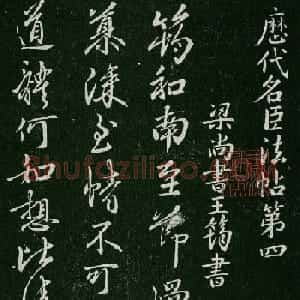 歷代名臣法帖第四
梁尚書王筠書
筠和南至節過
慕深至情不可
道體何如想比清
Shufaziliao.com